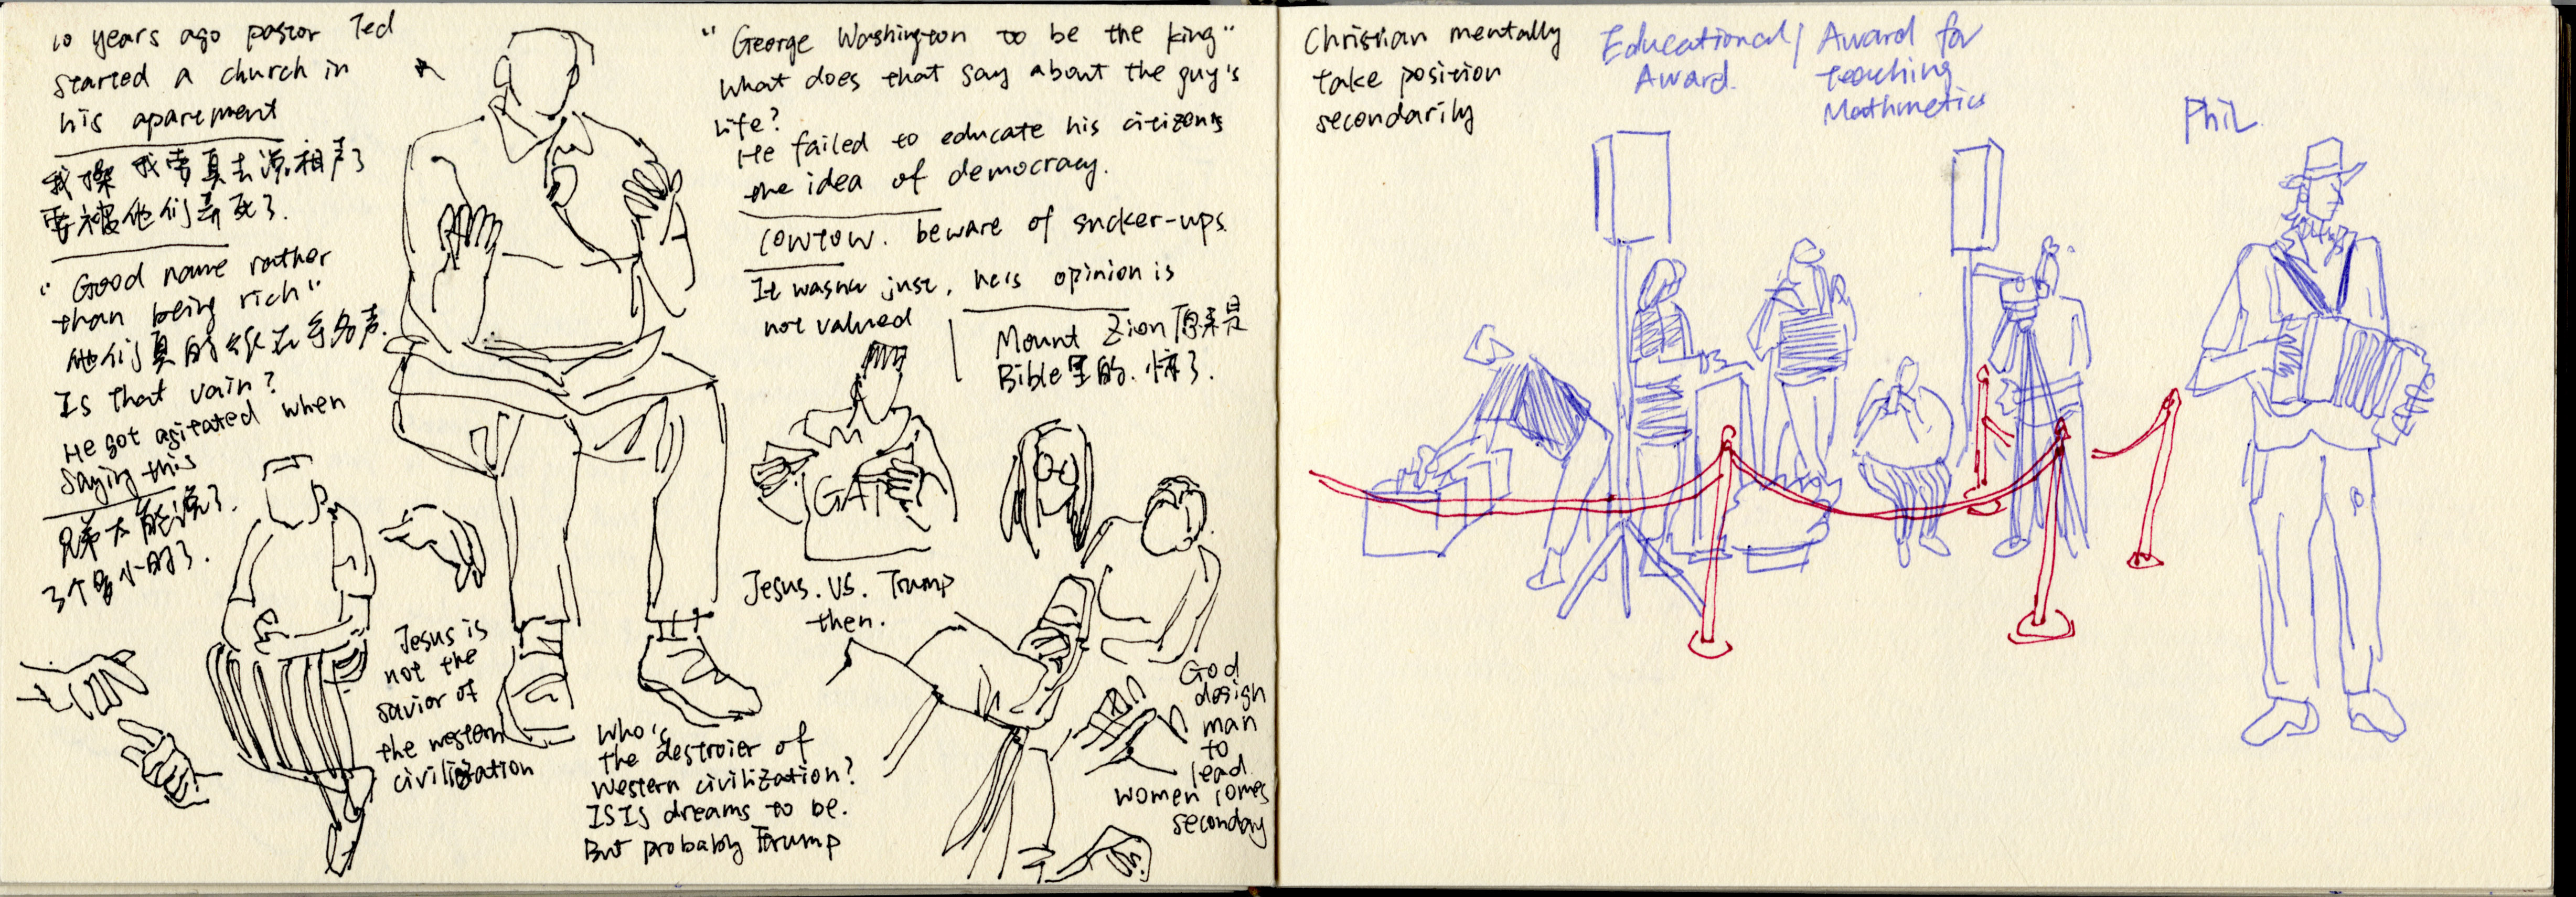 10 years ago pastor Ted
started a church in
his apartment
我操 我要真去说相声了
要被他们弄死了.
"Good name rather
than being rich"
他们真的很在乎名声.
Is that vain?
He got agitated when
saying this
兄弟太能说了.
3个多小时了.
Jesus is
not the
savior of
the western
civilization
"George Washington to be the king"
What does that say about the guy's
life?
He failed to educate his citizens
the idea of democracy.
cowtow. beware of sucker-ups.
It wasn't just, he's opinion is
not valued
Mount Zion 原来是
Bible里的. 懂了.
GAP
Jesus. VS. Trump
then.
Who's
the destroier of
western civilization?
ISIS dreams to be.
But probably Trump
God
design
man
to
lead
women comes
seconday
Christian mentally
take position
secondarily
Educational/
Award.
Award for
teaching
Mathmetics
Phil